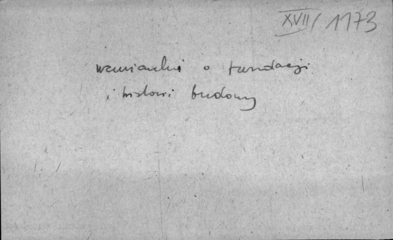 XVII/1173
wzmianki o fundacji
i historii budowy